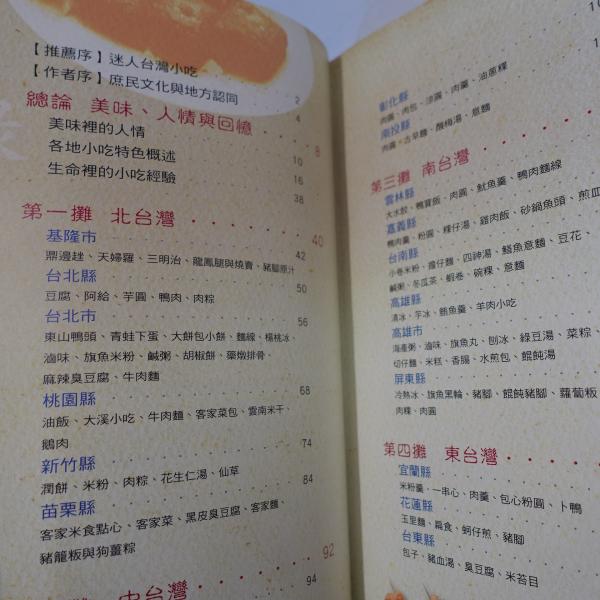 【推薦序】迷人台灣小吃 2
【作者序】庶民文化與地方認同 4
總論 美味、人情與回憶 8
美味裡的人情 10
各地小吃特色概述 16
生命裡的小吃經驗 38
第一攤 北台灣 40
基隆市 42
鼎邊趖、天婦羅、三明治、龍鳳腿與燒賣、豬腳原汁
台北縣 50
豆腐、阿給、芋圓、鴨肉、肉粽
台北市 56
東山鴨頭、青蛙下蛋、大餅包小餅、麵線、楊桃冰、
滷味、旗魚米粉、鹹粥、胡椒餅、藥燉排骨、
麻辣臭豆腐、牛肉麵
桃園縣 68
油飯、大溪小吃、牛肉麵、客家菜包、雲南米干、
鵝肉
新竹縣 74
潤餅、米粉、肉粽、花生仁湯、仙草
苗栗縣 84
客家米食點心、客家菜、黑皮臭豆腐、客家麵、
豬籠粄與狗薑粽
中台灣 92
94
彰化縣
肉圓、肉包、涼圓、肉羹、油蔥粿
南投縣
肉圓、古早麵、酸梅湯、意麵
第三攤 南台灣
雲林縣
大水餃、鴨寶飯、肉圓、魷魚羹、鴨肉麵線
嘉義縣
鴨肉羹、粉圓、粿仔湯、雞肉飯、砂鍋魚頭、煎血
台南縣
小卷米粉、擔仔麵、四神湯、鱔魚意麵、豆花、
鹹粥、冬瓜茶、蝦卷、碗粿、意麵
高雄縣
清冰、芋冰、鮪魚羹、羊肉小吃
高雄市
海產粥、滷味、旗魚丸、刨冰、綠豆湯、菜粽、
切仔麵、米糕、香腸、水煎包、餛飩湯
屏東縣
冷熱冰、旗魚黑輪、豬腳、餛飩豬腳、蘿蔔粄
肉粿、肉圓
第四攤 東台灣
宜蘭縣
米粉羹、一串心、肉羹、包心粉圓、卜鴨
花蓮縣
玉里麵、扁食、蚵仔煎、豬腳
台東縣
包子、豬血湯、臭豆腐、米苔目